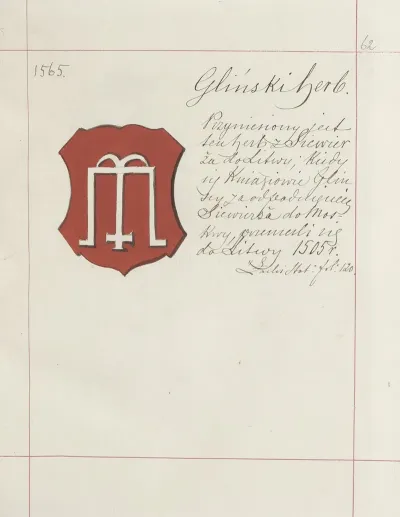 62
1565.
Gliński herb.
Przyniesiony jest
ten herb z Siewier
ża do Litwy, kiedy
się Kniaziowie Gliń
scy za odpadnięciem
Siewierża do Mos
kwy, przenieśli się
do Litwy 1505 r.
fol. 120.